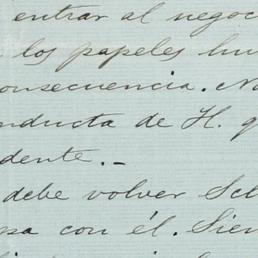 entrar al negoc
los papeles hu
onsecuencia. No
nducta de H. q
dente. _
debe volver Sch
sa con él. Sien